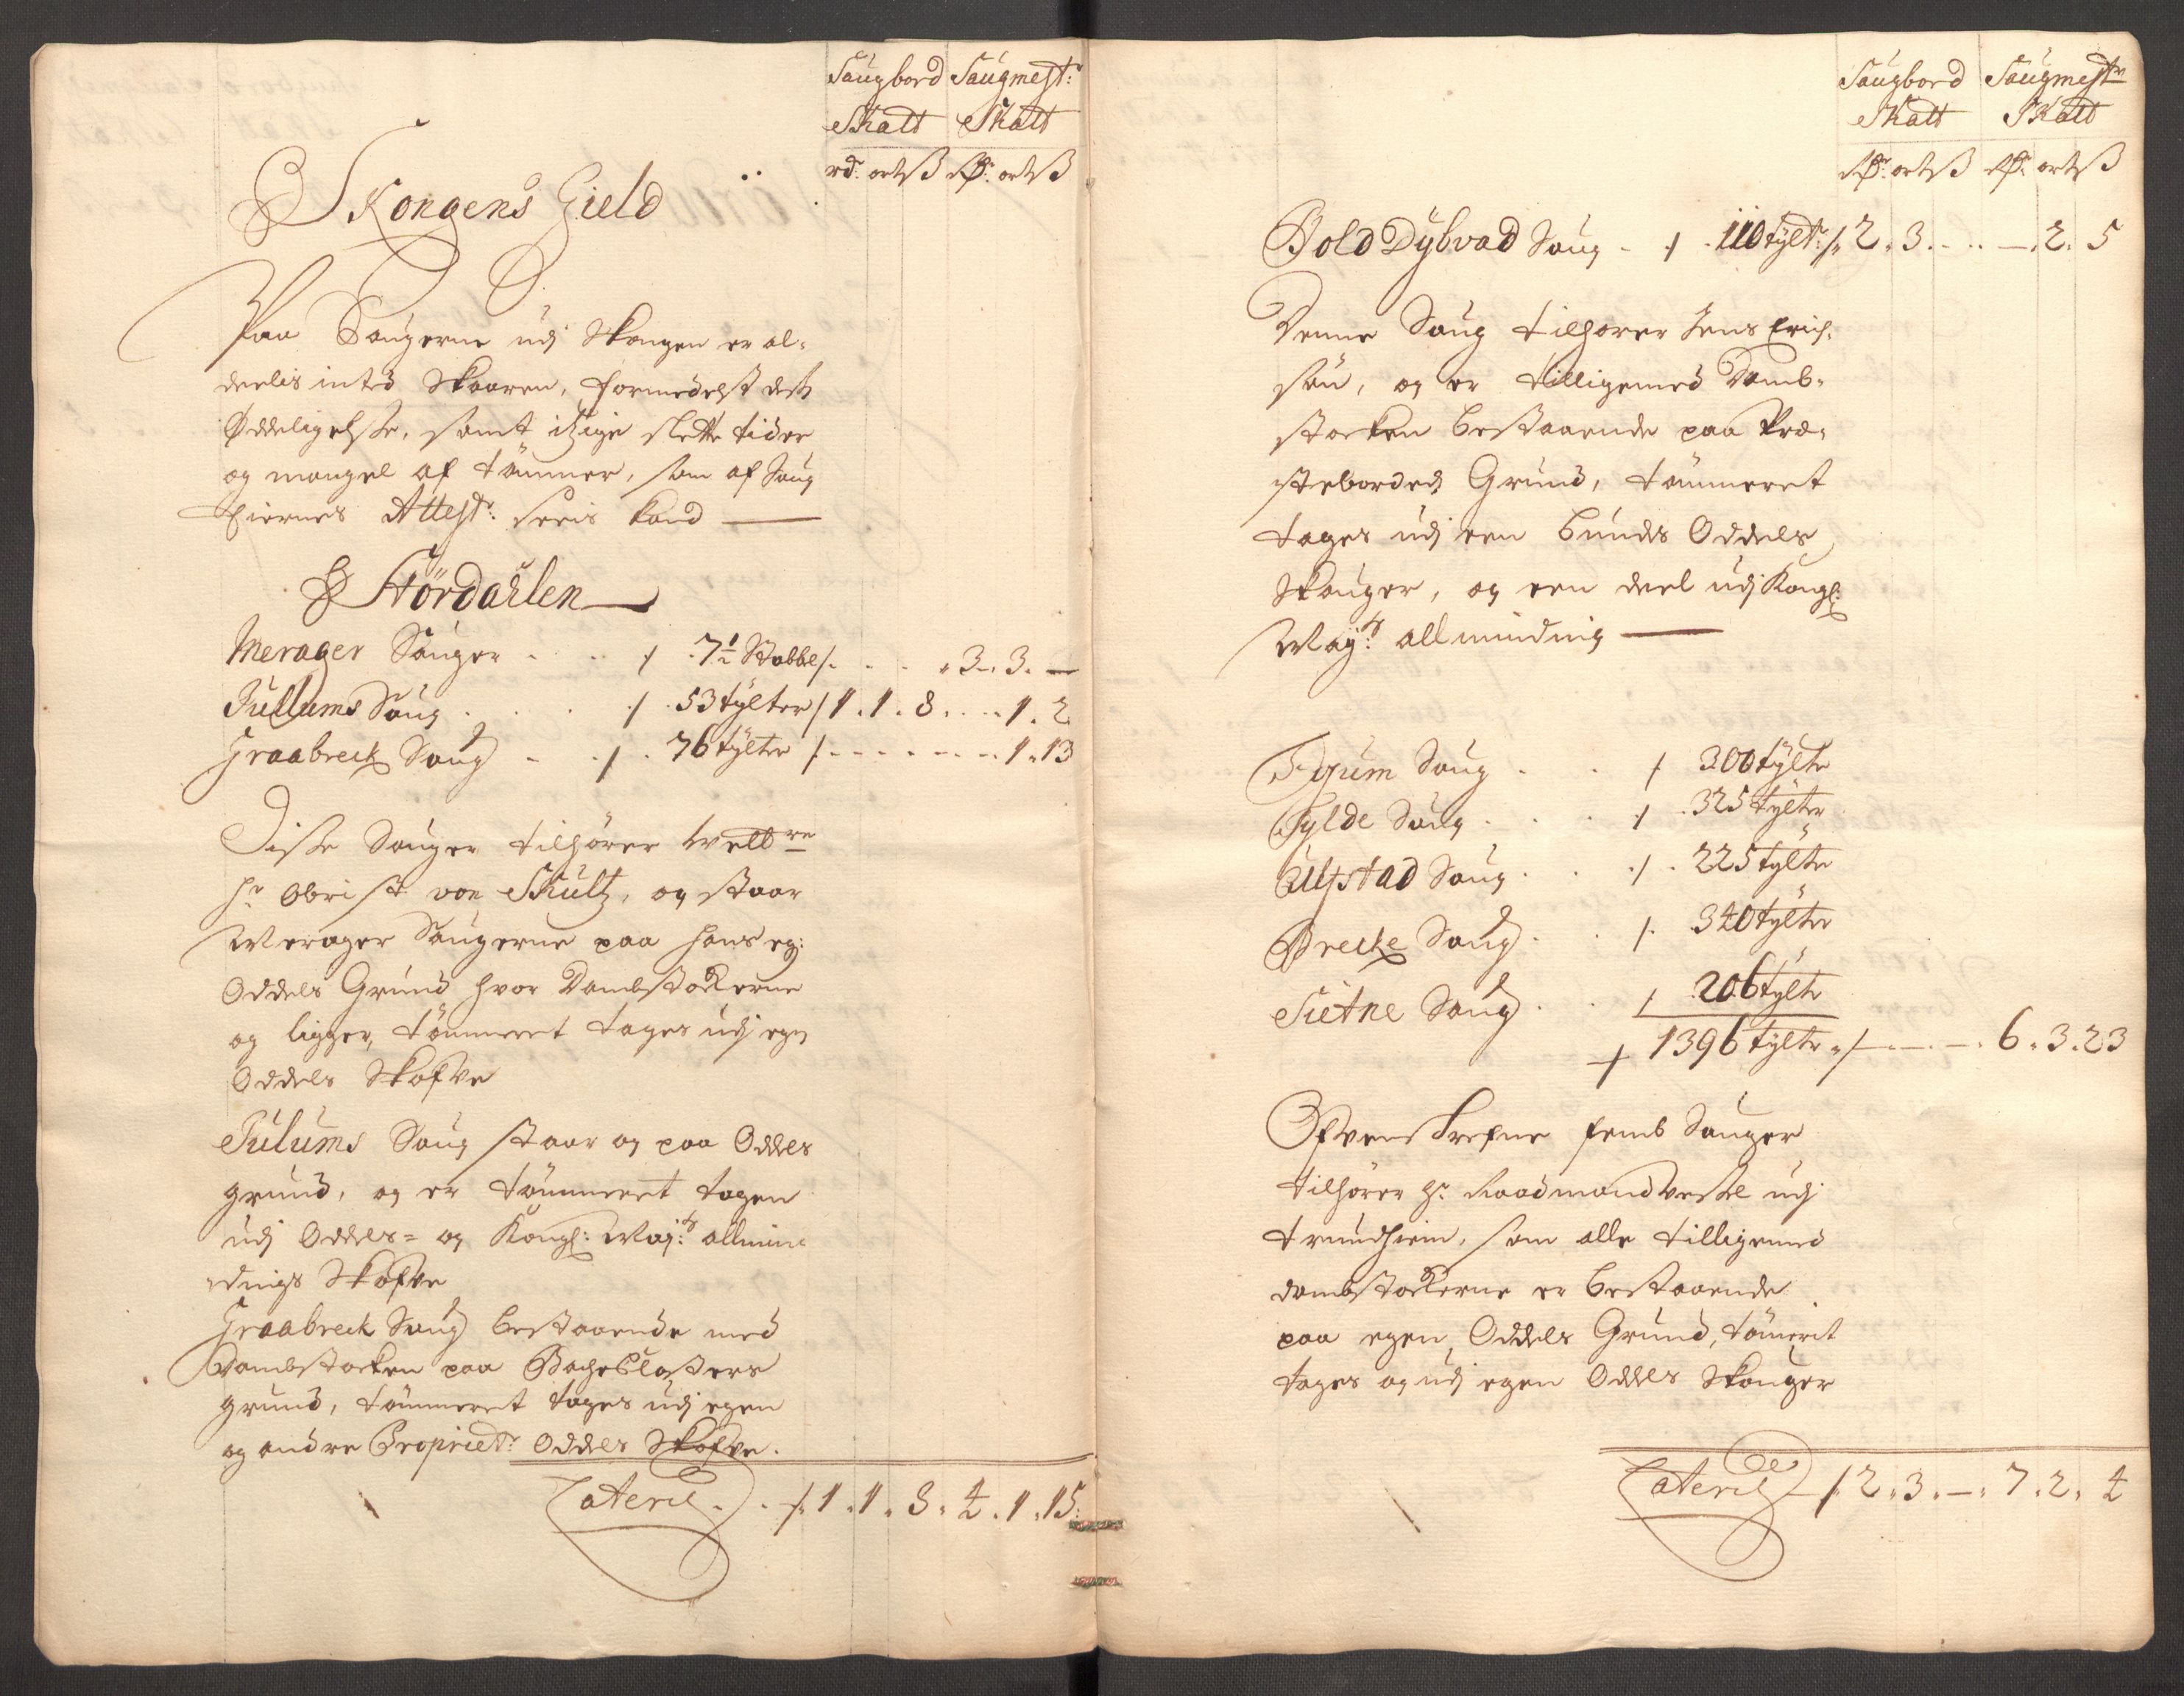 Saugbord Saugmest:
Skatt Skatt
rd: ort ß Rdr: ort ß
Skongens Gield
Paa Saugerne udj Skongen er al-
deelis inted Skaaren, formedelst dets
Øddeligelsse, samt itzige slette tider
og mangel af tömmer, som af Saug
Eiernes Attest: sees kand
Stördahlen
Merager Sauger . . . / . 7½ Stabbe /. . . . 3. 3. —
Fullums Saug . . . / . 53 tylter / 1. 1. 8. . . . 1. 2
Graabreck Saug . . / . 76 tylter /. - - - - - - 1. 13
Disse Sauger tilhörer Welbrne
Hr Obrist von Schultz, og staar
Merager Saugerne paa hans eg:
Oddels Grund hvor Dambstokkerne
og ligger, tömmeret tages udj egen
Oddels Skofve
Fulums Saug staar og paa Oddels
grund, og er tömmeret tagen
udj Oddels= og Kongl: Mayts: allmin
dings Skofve
Graabreck Saug bestaaende med
Dambstocken paa Bache Closters
grund, tömmeret tages udj egen
og andre Propriet: Oddels Skofve.
Lateris . . /. 1. 1. 8. 4. 1. 15:
Saugbord Saugmestr
Skatt Skatt
Rdr: ort ß Rdr: ort ß
Bold Dybvad Saug - / . 110 tylt: /. 2. 3. . . . —. 2. 5
Denne Saug tilhører Jens Erich-
sön, og er tilligemed Damb-
stocken bestaaende paa Præ-
steborded Grund, tömmeret
tages udj een bunds Oddels
Skouger, og een deel udj Kongl:
Mayts: allminding
Fygum Saug . . / 300 tylter
Sylde Saug . . . / . 325 tylter
Ulfstad Saug . . . / . 225 tylter
Brecke Saug . . /. 340 tylter
Sietne Saug . . / . 206 tylter
/ 1396 tylter . / - - - . 6. 3. 23
Ofvenskrefne femb Sauger
tilhörer Hr. Raadmand Wessel udj
Trundhiem, som alle tilligemed
dambstockerne er bestaaende
paa egen Oddels Grund, tömerit
tages og udj egen Oddels Skouger
Lateris /. 2. 3. —. 7. 2. 4